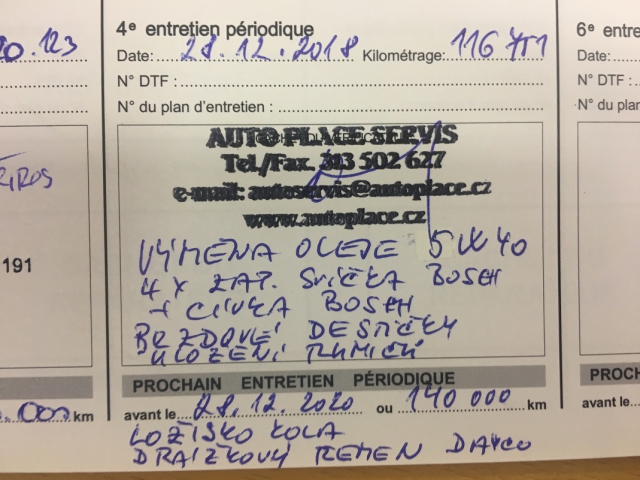 4e entretien périodique
Date: 28.12.2018 Kilométrage: 116 751
N° DTF :
N° du plan d'entretien :
AUTO PLACE SERVIS
Tel./Fax. 313 502 627
e-mail: autoservis@autoplace.cz
www.autoplace.cz
VÝMĚNA OLEJE 5W40
4 X ZAP. SVÍČKA BOSCH
+ CÍVKA BOSCH
BRZDOVÉ DESTIČKY
ULOŽENÍ
PROCHAIN ENTRETIEN PÉRIODIQUE
avant le 28.12.2020 ou 140 000 km
LOŽISKO KOLA
DRÁŽKOVÝ ŘEMEN DAYCO
0.123
191
.000 km
6e entre
Date:
N° DTF :
N° du plan
PROCH
avant le